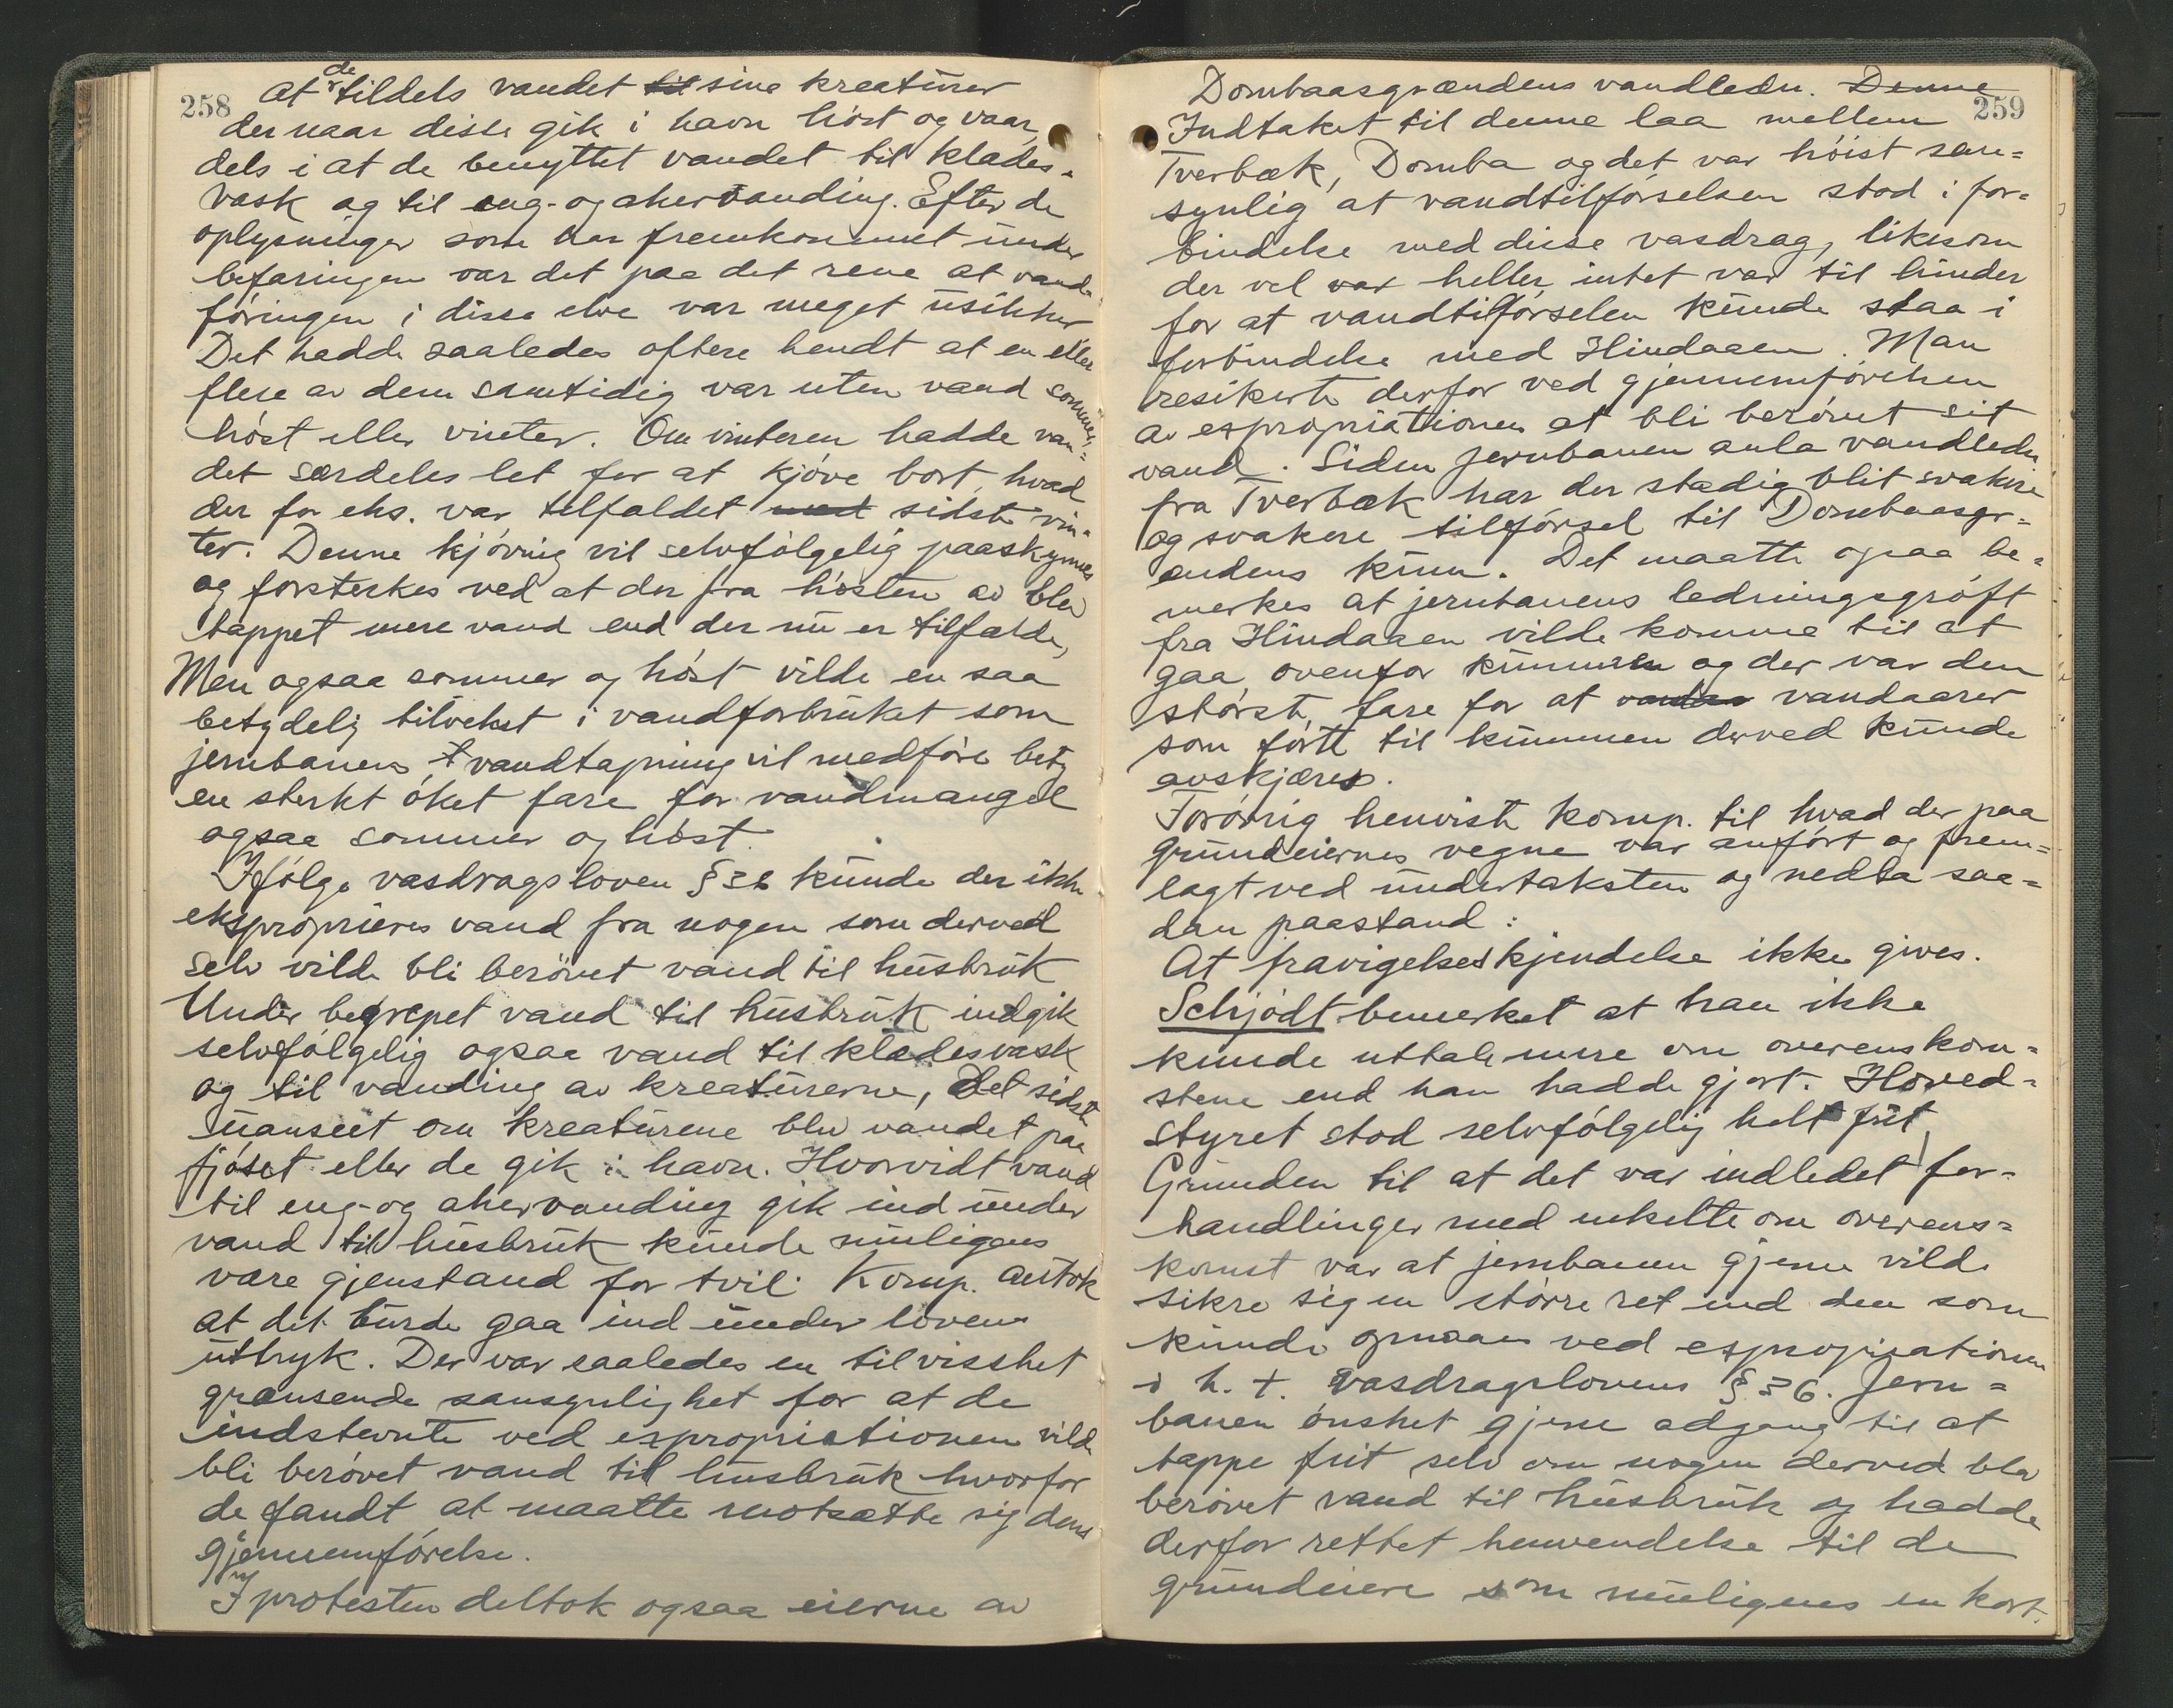 258
At de tildels vandet til sine kreaturer
der naar disse gik i havn höst og vaar,
dels i at de benyttet vandet til klædes-
vask og til eng- og akervanding. Efter de
oplysninger som var fremkommet under
befaringen var det paa det rene at vand-
föringen i disse elve var meget usikker
Det hadde saaledes oftere hendt at en eller
flere av dem samtidig var uten vand sommer,
höst eller vinter. Om vinteren hadde van=
det særdeles let for at kjöve bort, hvad
der for eks. var tilfældet med sidste vin=
ter. Denne kjöving vil selvfölgelig paaskynnes
og forsterkes ved at der fra hösten av blev
tappet mere vand end der nu er tilfælde,
Men ogsaa sommer og höst vilde en saa
betydelig tilvekst i vandforbruket som
jernbanens t vandtapning vil medföre bety
en sterkt öket fare for vandmangel
ogsaa sommer og höst.
Ifölge vasdragsloven § 36 kunde der ikke
eksproprieres vand fra nogen som derved
selv vilde bli berövet vand til husbruk
Under begrepet vand til husbruk indgik
selvfölgelig ogsaa vand til klædesvask
og til vanding av kreaturerne, det sidste
uanseet om kreaturene blev vandet paa
fjöset eller de gik i havn. Hvorvidt vand
til eng- og akervanding gik ind under
vand til husbruk kunde muligens
være gjenstand for tvil. Komp. antok
at det burde gaa ind under lovens
uttryk. Der var saaledes en til visshet
grænsende sansynlighet for at de
indstevnte ved expropriationen vilde
bli berövet vand til husbruk hvorfor
de fandt at maatte motsætte sig dens
gjennemförelse.
I protesten deltok ogsaa eierne av
259
Dombaasgrændens vandledn. Denne
Indtaket til denne laa mellem
Tverbæk, Domba og det var höist san=
synlig at vandtilförselsen stod i for=
bindelse med disse vasdrag, likesom
der vel var heller intet var til hinder
for at vandtilförselen kunde staa i
forbindelse med Hindaaen. Man
resikerte derfor ved gjennemförelsen
av expropriationen at bli berövet sit
vand. Siden jernbanen anla vandledn
fra Tverbæk har der stadig blit svakere
og svakere tilförsel til Dombaasgr=
ændens kum. Det maatte ogsaa be=
merkes at jernbanens ledningsgröft
fra Hindaaen vilde komme til at
gaa ovenfor kummen og der var den
störste fare for at vandaa vandaarer
som förte til kummen derved kunde
avskjæres.
Forövrig henviste komp. til hvad der paa
grundeiernes vegne var anfört og frem=
lagt ved undertaksten og nedla saa=
dan paastand:
At fravigelseskjendelse ikke gives.
Schjödt bemerket at han ikke
kunde uttale mere om overenskom=
stene end han hadde gjort. Hoved=
styret stod selvfölgelig helt frit
Grunden til at det var indledet for=
handlinger med enkelte om overens=
komst var at jernbanen gjerne vilde
sikre sig en större ret end den som
kunde opnaaes ved expropriationen
i h. t. Vasdragslovens § 36. Jern=
banen önsket gjerne adgang til at
tappe frit selv om nogen derved blev
berövet vand til husbruk og hadde
derfor rettet henvendelse til de
grundeiere som muligens en kort.